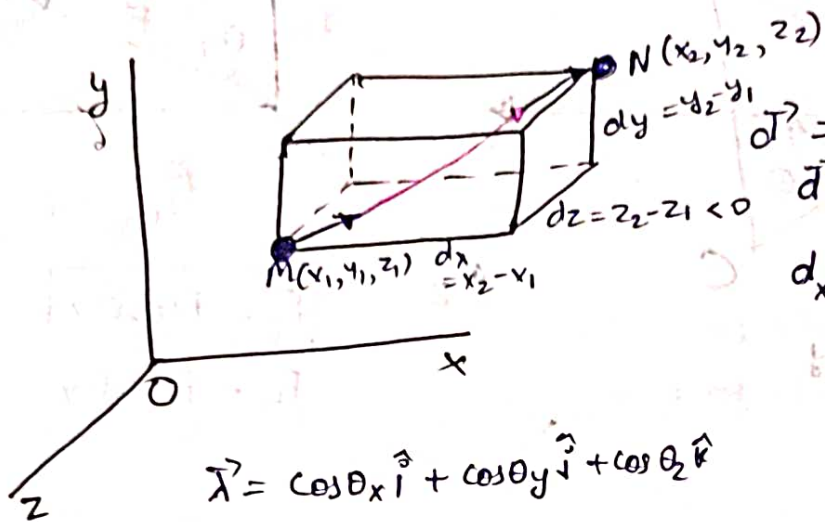 y
N(x₂, y₂, z₂)
dy = y₂-y₁
d⃗ =
d
dz = z₂-z₁ < 0
M(x₁, y₁, z₁)
dx
= x₂-x₁
dₓ
x
O
z
λ⃗ = cosθₓ î + cosθy ĵ + cosθz k̂